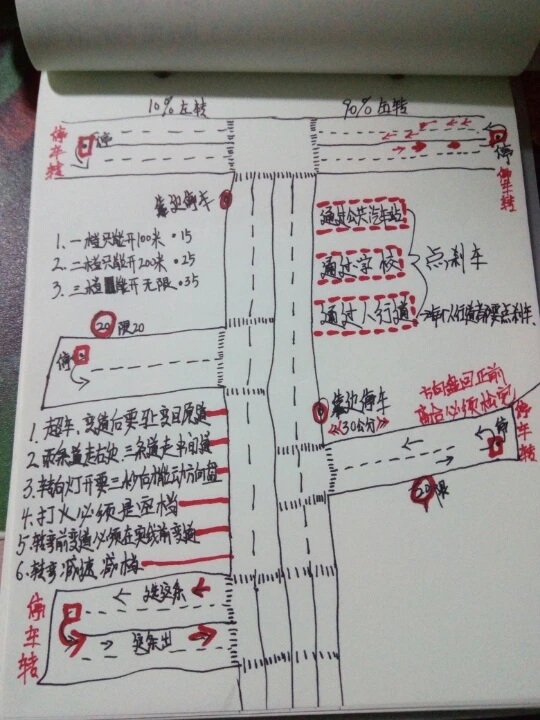 10%左转
90%右转
停车转
停
停
停车转
靠边停车
通过公共汽车站
通过学校
点刹车
通过人行道
1.一档只能开100米·15
2.二档只能开200米·25
3.三档能开无限·35
20 限20
停
靠边停车
(30公分)
方向盘回正前
离合必须松完
停
停车转
20限
1.超车、变道后要马上变回原道
2.两条道走右边 三条道走中间道
3.转向灯开要三秒后搬动方向盘
4.打火必须是空档
5.转弯前变道必须在实线前变道
6.转弯.减速.减档
停车转
进
出